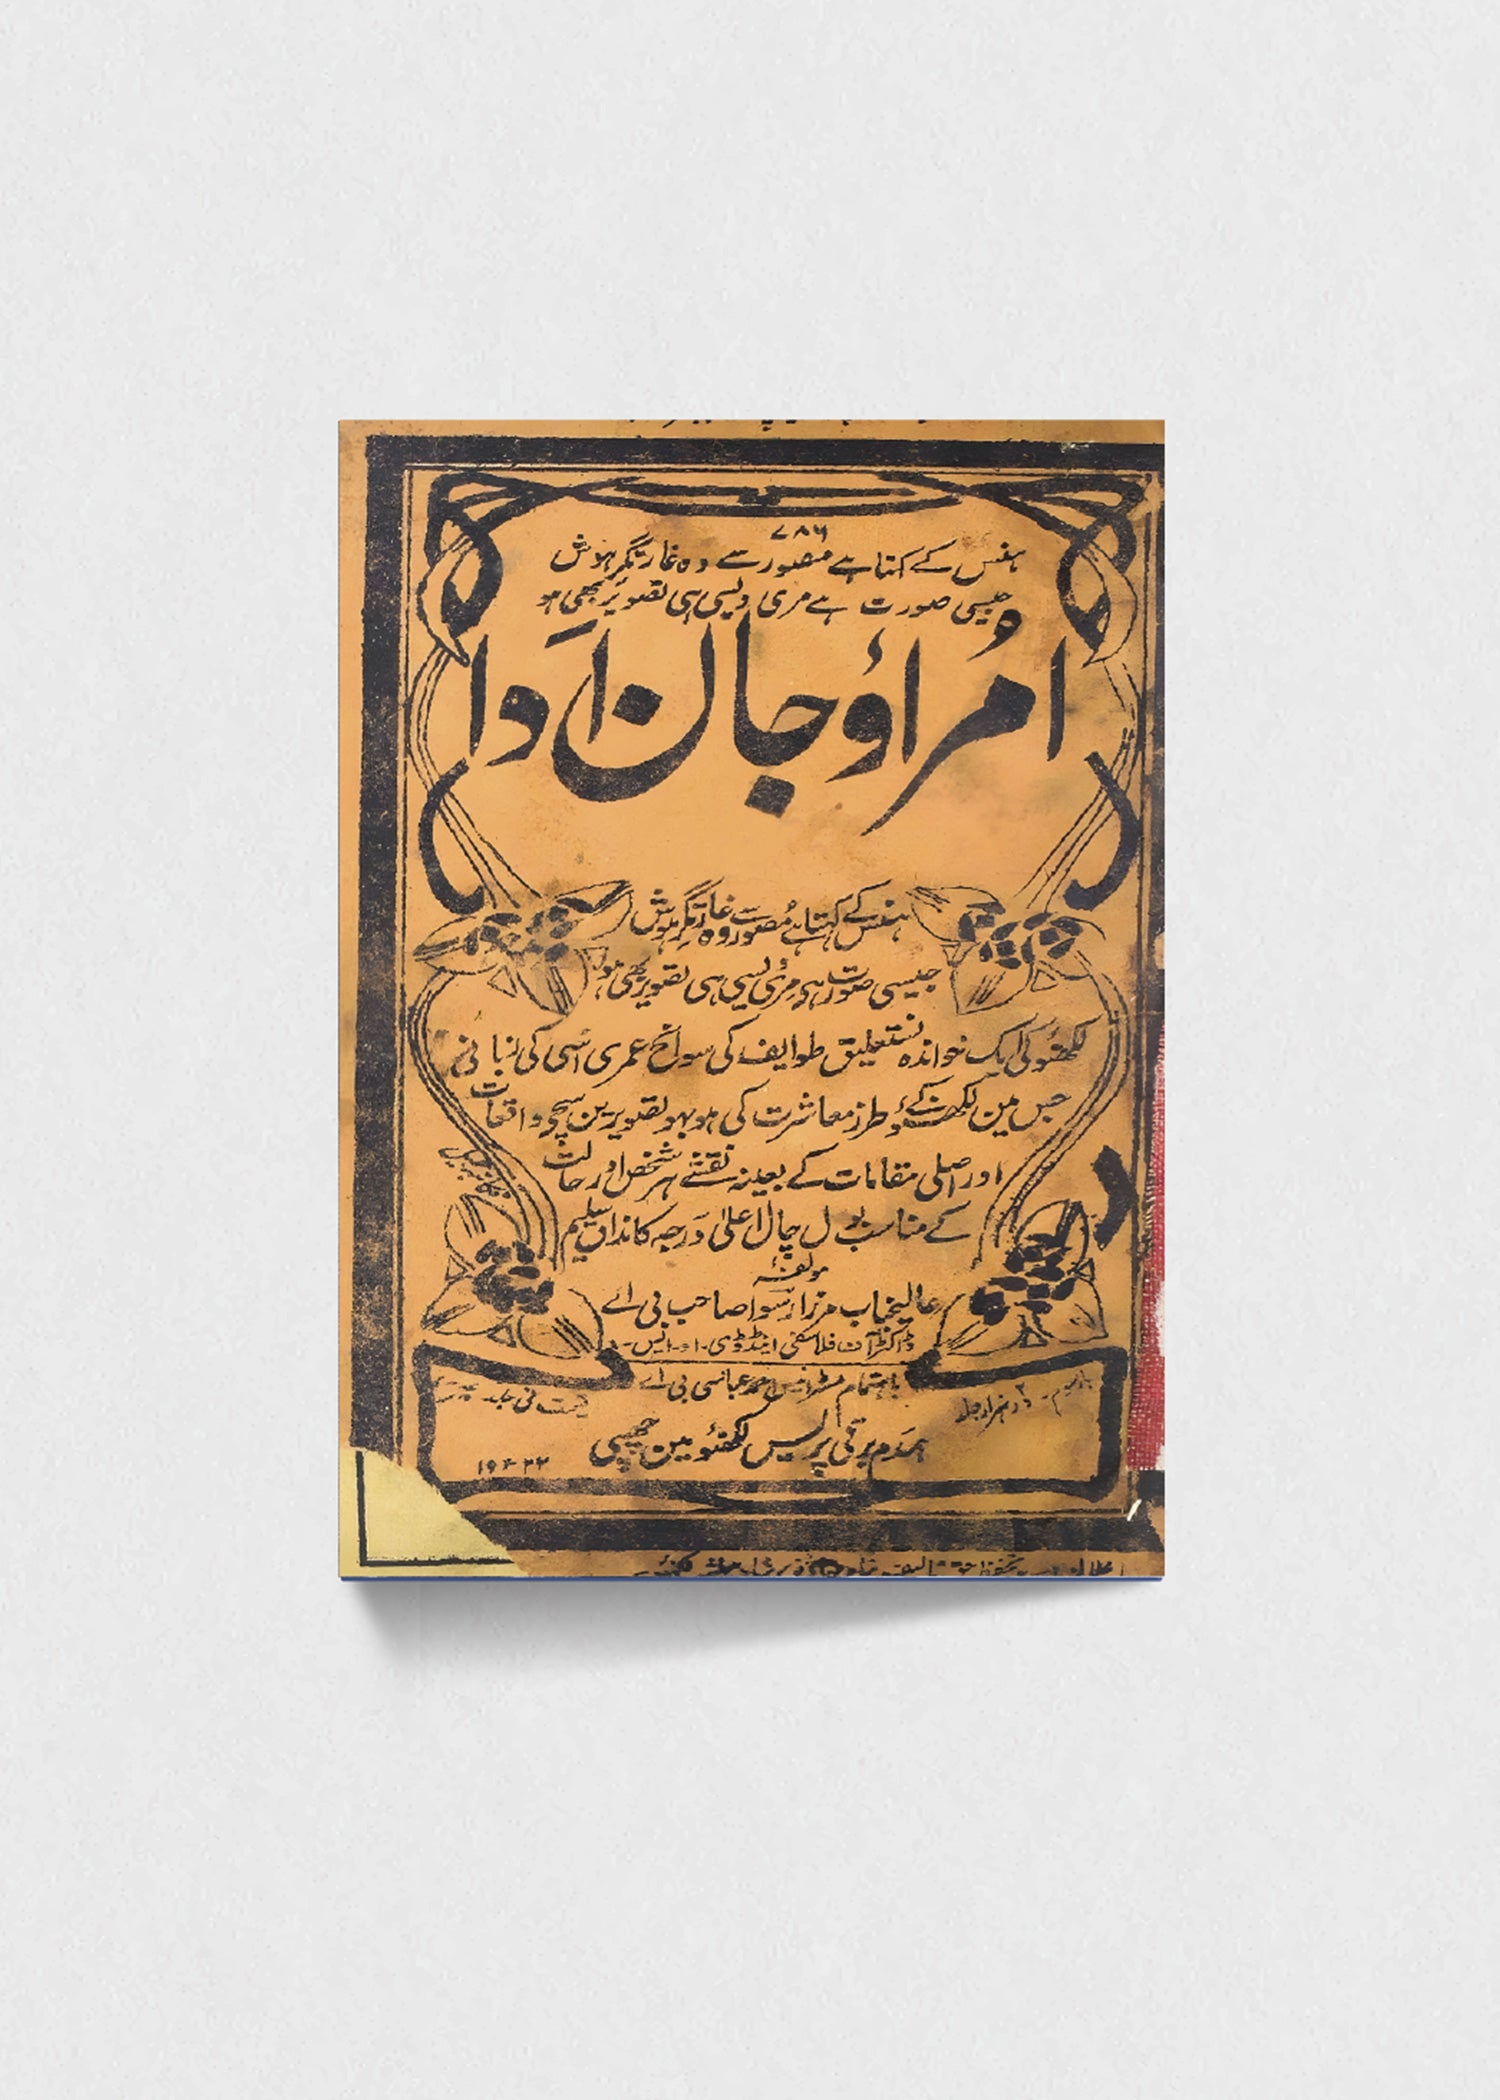 ۷۸۶
ہنس کے کہتا ہے مصور سے وہ غارتگر ہوش
جیسی صورت ہے مری ویسی ہی تصویر بھی ہو
امراؤ جان ادا
ہنس کے کہتا ہے مصور سے وہ غارتگر ہوش
جیسی صورت ہے مری ویسی ہی تصویر بھی ہو
لکھنؤ کی ایک خواندہ نستعلیق طوایف کی سوانح عمری اسی کی زبانی
جس مین لکھنؤ کے طرز معاشرت کی ہو بہو تصویرین سچے واقعات
اور اصلی مقامات کے بعینہ نقشے ہر شخص اور حالت
کے مناسب بول چال اعلیٰ درجہ کا مذاق سلیم
مولفہٗ
عالیجناب مرزا رسوا صاحب بی اے
ڈاکٹر آف فلاسفی اینڈ ڈی۔ او۔ ایس۔
باہتمام مسٹر انیس احمد عباسی بی اے
قیمت فی جلد
ہمدم برقی پریس لکھنؤ مین چھپی